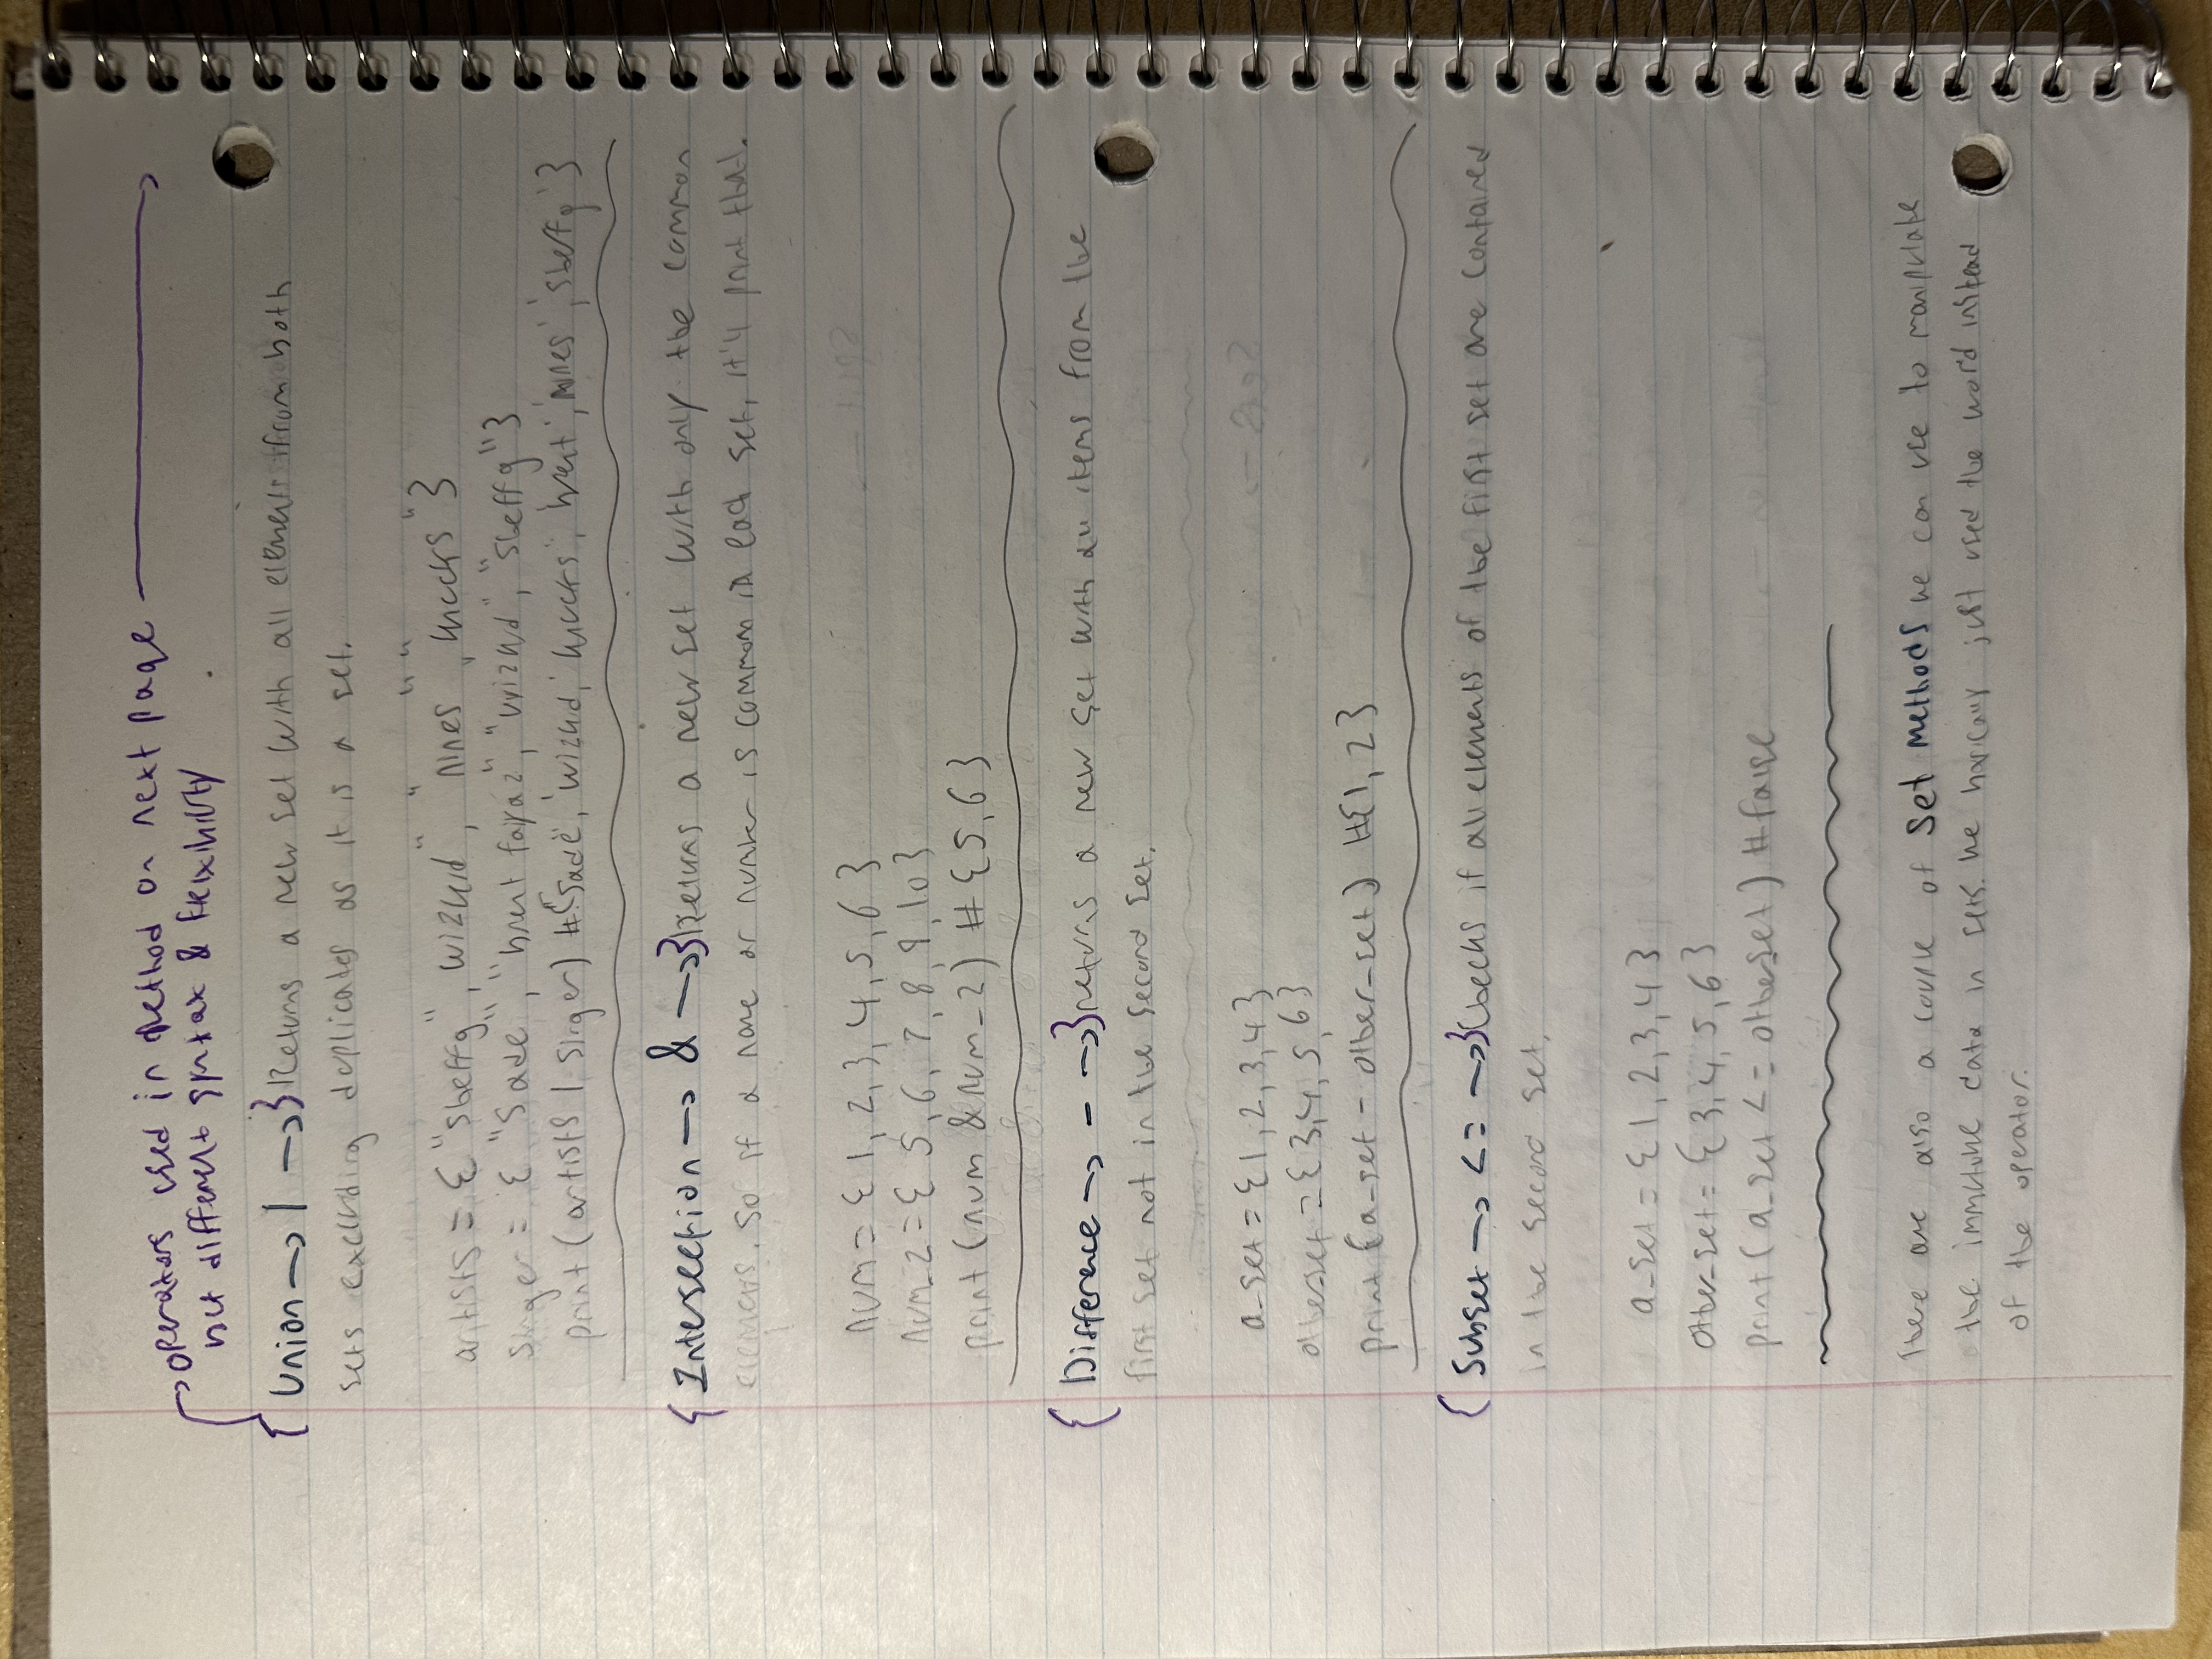 operators used in method on next page
but different syntax & flexibility
{ Union → | → } Returns a new set with all elements from both
sets excluding duplicates as it is a set.
artists = { "sbeffg", wizkid", "nines", "knucks"}
singer = { "Sade", "brent faiyaz", "wizkid", "sbeffg"}
print (artists | singer) #{'Sade', 'wizkid, 'knucks', 'brent', 'nines', 'sbeffg'}
{ Intersection → & → } Returns a new set with only the common
elements. So if a name or number is common in each set, it'll print that.
num = { 1, 2, 3, 4, 5, 6 }
num_2 = { 5, 6, 7, 8, 9, 10 }
print (num & num_2) # {5, 6}
{ Difference → - → } returns a new set with all items from the
first set not in the second set.
a_set = {1, 2, 3, 4}
other_set = { 3, 4, 5, 6}
print (a_set - other_set) #{1, 2}
{ Subset → <= → } Checks if all elements of the first set are contained
in the second set.
a_set = {1, 2, 3, 4}
other_set = { 3, 4, 5, 6}
print (a_set <= other_set) # false
There are also a couple of Set Methods we can use to manipulate
the immutable data in sets. We basically just used the word instead
of the operator.